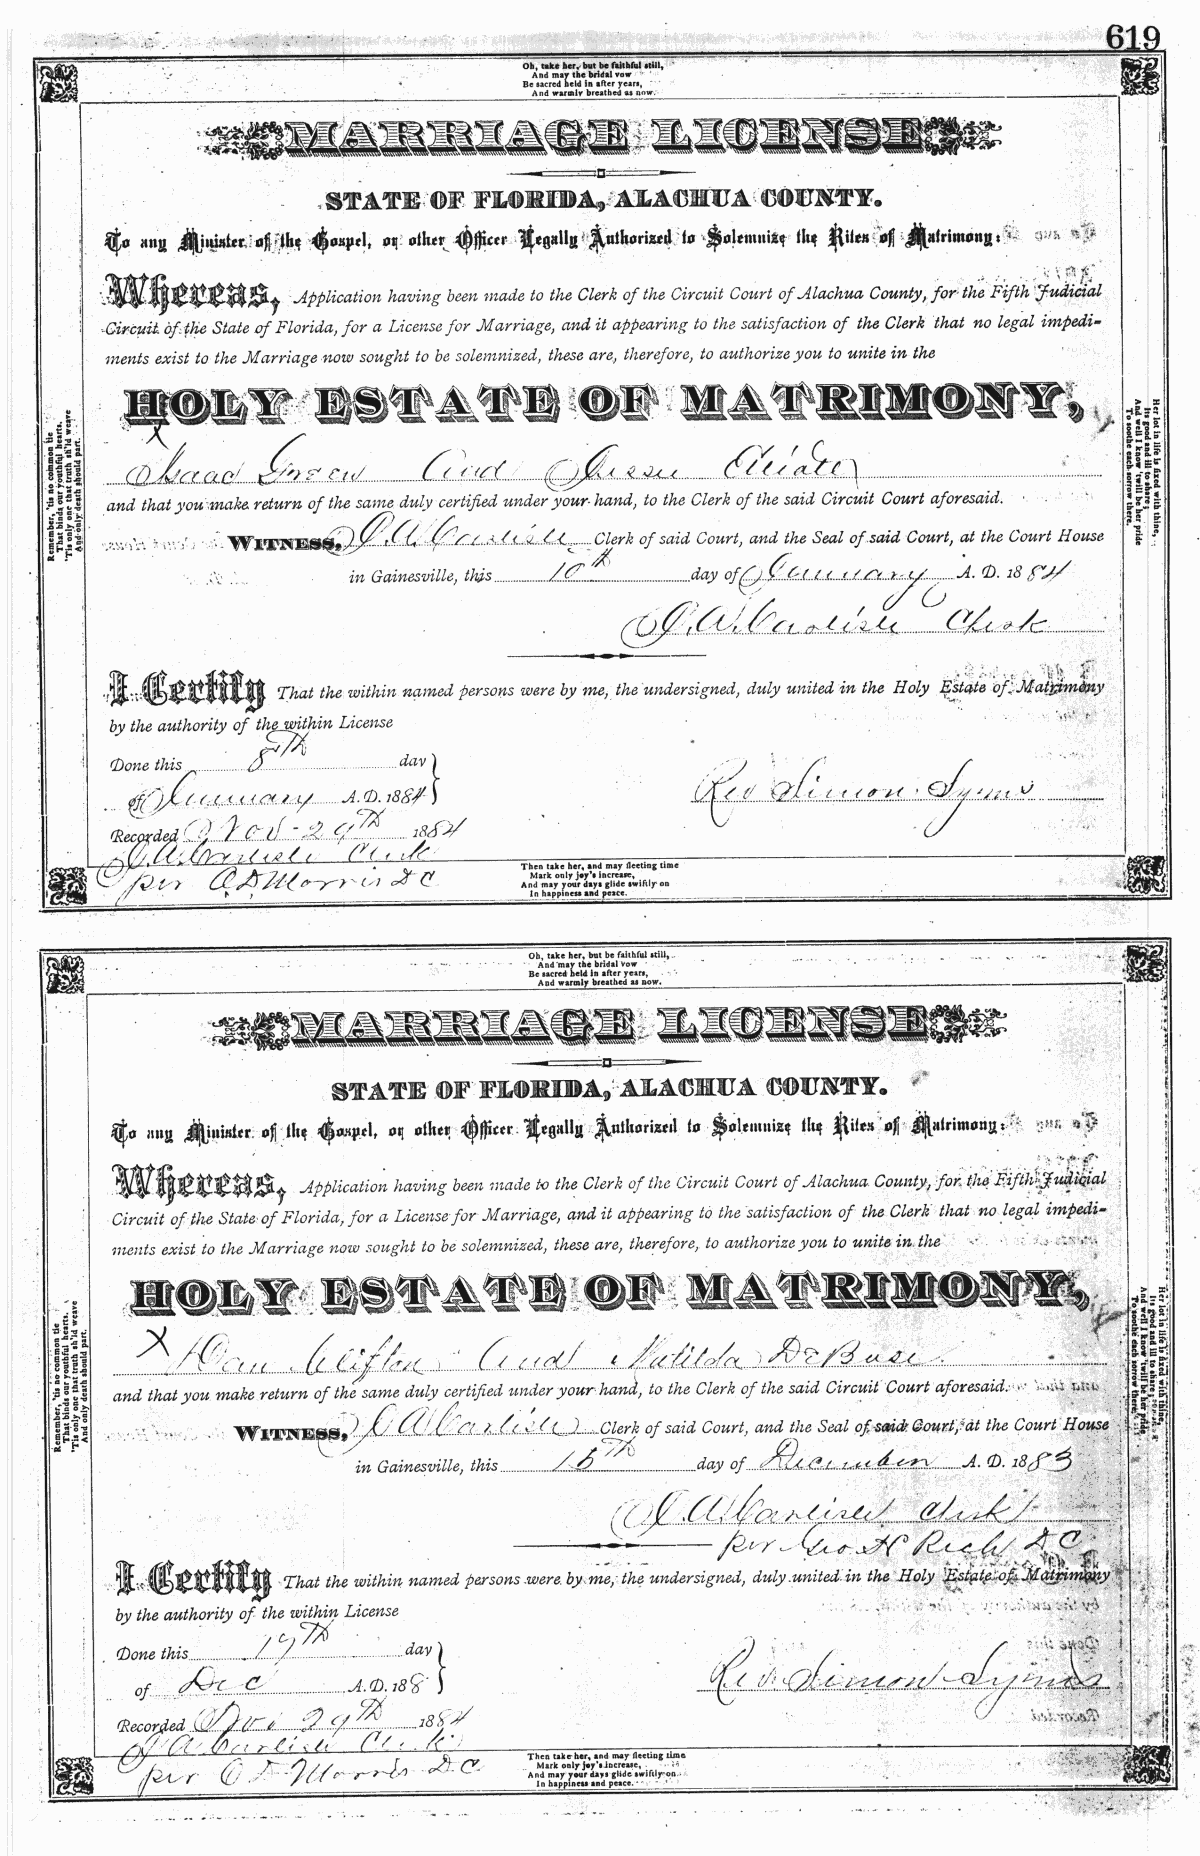 619
Oh, take her, but be faithful still,
And may the bridal vow
Be sacred held in after years,
And warmly breathed as now.
MARRIAGE LICENSE
STATE OF FLORIDA, ALACHUA COUNTY.
To any Minister of the Gospel, or other Officer Legally Authorized to Solemnize the Rites of Matrimony:
Whereas, Application having been made to the Clerk of the Circuit Court of Alachua County, for the Fifth Judicial
Circuit of the State of Florida, for a License for Marriage, and it appearing to the satisfaction of the Clerk that no legal impedi-
ments exist to the Marriage now sought to be solemnized, these are, therefore, to authorize you to unite in the
HOLY ESTATE OF MATRIMONY,
X
Isaac Green And
and that you make return of the same duly certified under your hand, to the Clerk of the said Circuit Court aforesaid.
WITNESS, J. A. Carlisle Clerk of said Court, and the Seal of said Court, at the Court House
in Gainesville, this 10th day of January A. D. 1884
J. A. Carlisle Clerk
I Certify That the within named persons were by me, the undersigned, duly united in the Holy Estate of Matrimony
by the authority of the within License
Done this 8th day
of January A. D. 1884
Rev Simon Syms
Recorded Nov-29th 1884
J. A. Carlisle Clerk
per O D Morris D C
Then take her, and may fleeting time
Mark only joy's increase,
And may your days glide swiftly on
In happiness and peace.
Remember, 'tis no common tie
That binds our youthful hearts.
'Tis only one that truth sh'ld weave
And only death should part.
Her lot in life is fixed with thine,
Its good and ill to share;
And well I know 'twill be her pride
To soothe each sorrow there.
Oh, take her, but be faithful still,
And may the bridal vow
Be sacred held in after years,
And warmly breathed as now.
MARRIAGE LICENSE
STATE OF FLORIDA, ALACHUA COUNTY.
To any Minister of the Gospel, or other Officer Legally Authorized to Solemnize the Rites of Matrimony:
Whereas, Application having been made to the Clerk of the Circuit Court of Alachua County, for the Fifth Judicial
Circuit of the State of Florida, for a License for Marriage, and it appearing to the satisfaction of the Clerk that no legal impedi-
ments exist to the Marriage now sought to be solemnized, these are, therefore, to authorize you to unite in the
HOLY ESTATE OF MATRIMONY,
X
Dan Clifton And Matilda DeBose
and that you make return of the same duly certified under your hand, to the Clerk of the said Circuit Court aforesaid.
WITNESS, J. A. Carlisle Clerk of said Court, and the Seal of said Court, at the Court House
in Gainesville, this 15th day of December A. D. 1883
J. A. Carlisle Clerk
per Geo. H Rich D C
I Certify That the within named persons were by me, the undersigned, duly united in the Holy Estate of Matrimony
by the authority of the within License
Done this 17th day
of Dec A. D. 188
Rev. Simon Syms
Recorded Nov 29th 1884
J. A. Carlisle Clerk
per O D Morris D C
Then take her, and may fleeting time
Mark only joy's increase,
And may your days glide swiftly on
In happiness and peace.
Remember, 'tis no common tie
That binds our youthful hearts.
'Tis only one that truth sh'ld weave
And only death should part.
Her lot in life is fixed with thine,
Its good and ill to share;
And well I know 'twill be her pride
To soothe each sorrow there.